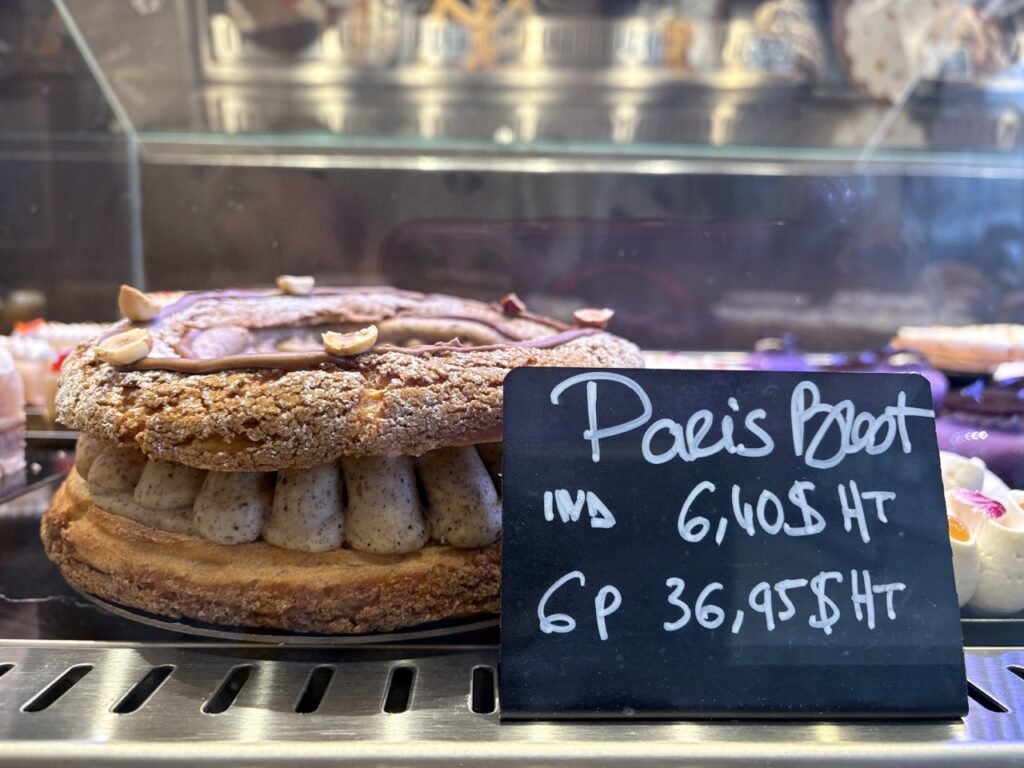 Paris Brest
IND 6,40$ HT
6P 36,95$ HT